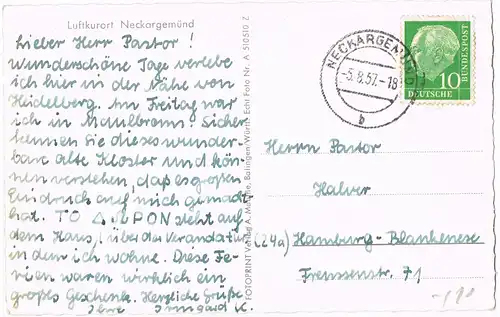 Luftkurort Neckargemünd
Lieber Herr Pastor!
Wunderschöne Tage verlebe
ich hier in der Nähe von
Heidelberg. Am Freitag war
ich in Maulbronn! Sicher
kennen Sie dieses wunder-
bare alte Kloster und kön-
nen verstehen, daß es großen
Eindruck auf mich gemacht
hat. TO steht auf
dem Haus, über der Verandatür
in dem ich wohne. Diese Fe-
rien waren wirklich ein
großes Geschenk. Herzliche Grüße
Ihre Irmgard K.
FOTOPRINT Verlag A. Balingen/Württ. Echt Foto Nr. A 510510 Z
NECKARGEMÜND
-5.8.57.-18
b
10
DEUTSCHE
BUNDESPOST
Herrn Pastor
Halver
(24a) Hamburg-Blankenese
Frenssenstr. 71